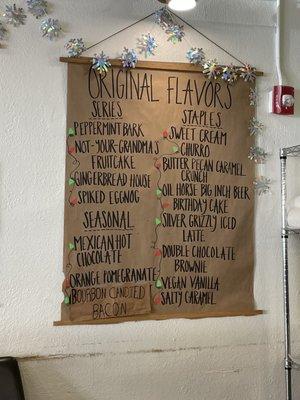 ORIGINAL FLAVORS
SERIES
PEPPERMINT BARK
NOT-YOUR-GRANDMA'S
FRUITCAKE
GINGERBREAD HOUSE
SPIKED EGGNOG
SEASONAL
MEXICAN HOT
CHOCOLATE
ORANGE POMEGRANATE
BOURBON CANDIED
BACON
STAPLES
SWEET CREAM
CHURRO
BUTTER PECAN CARAMEL
CRUNCH
OIL HORSE BIG INCH BEER
BIRTHDAY CAKE
SILVER GRIZZLY ICED
LATTE
DOUBLE CHOCOLATE
BROWNIE
VEGAN VANILLA
SALTY CARAMEL